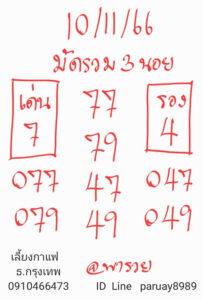 10/11/66
มัดรวม 3 นอย
เด่น 77 รอง
7 79 4
077 47 047
079 49 049
เลี้ยงกาแฟ
ธ.กรุงเทพ @พารวย
0910466473 ID Line paruay8989